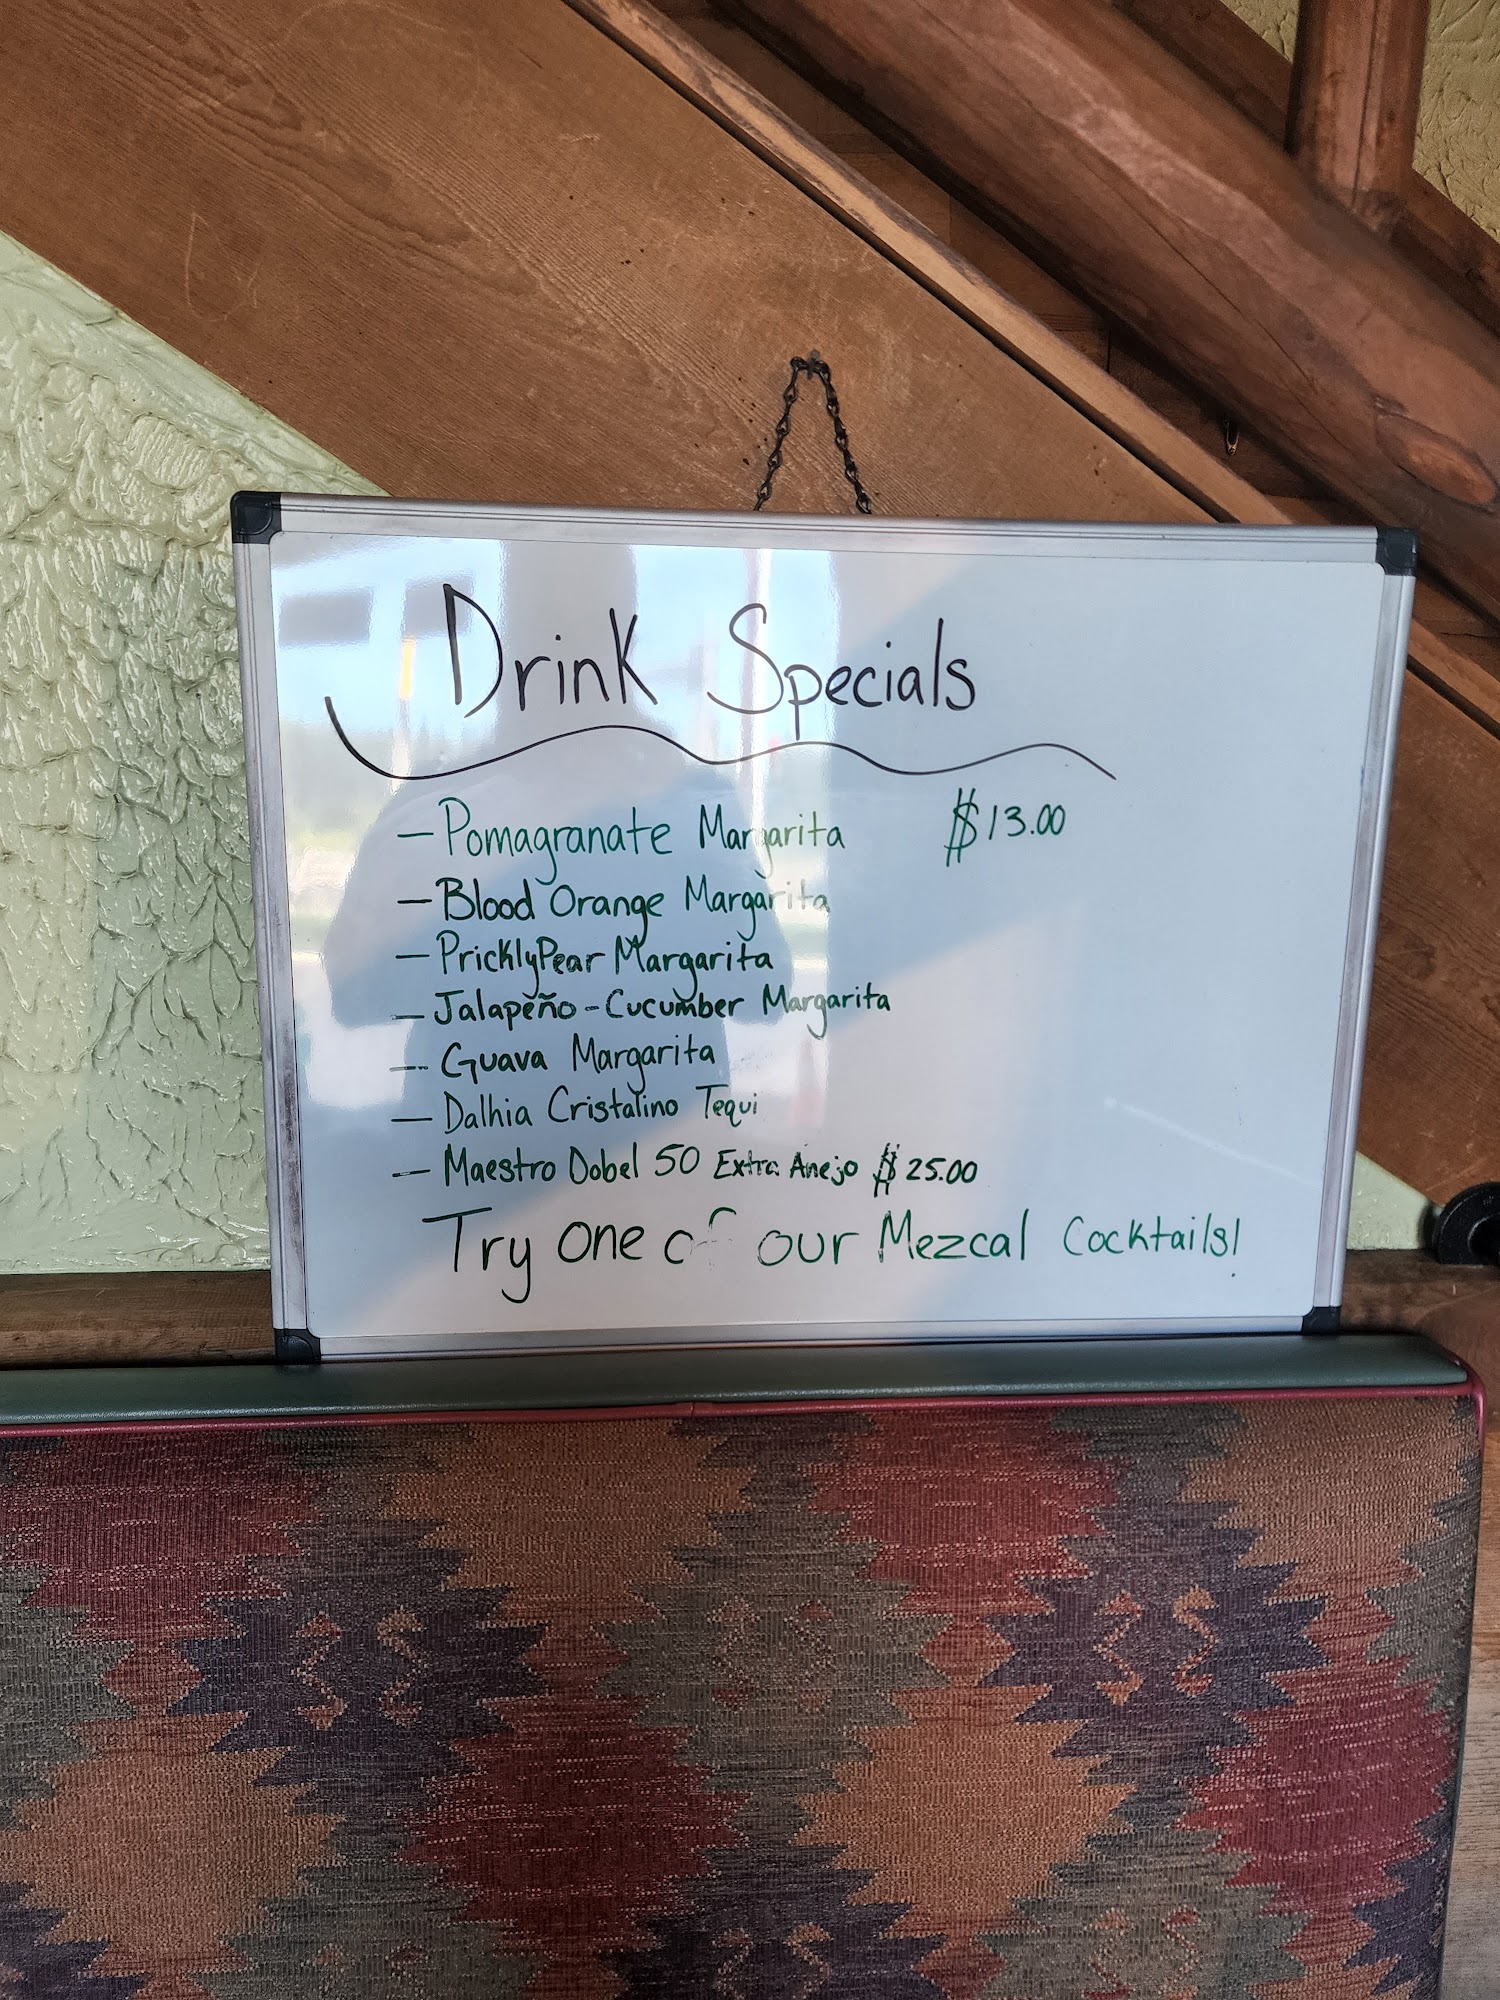 Drink Specials
- Pomagranate Margarita $13.00
- Blood Orange Margarita
- PricklyPear Margarita
- Jalapeño-Cucumber Margarita
- Guava Margarita
- Dalhia Cristalino Tequi
- Maestro Dobel 50 Extra Anejo $25.00
Try one of our Mezcal Cocktails!